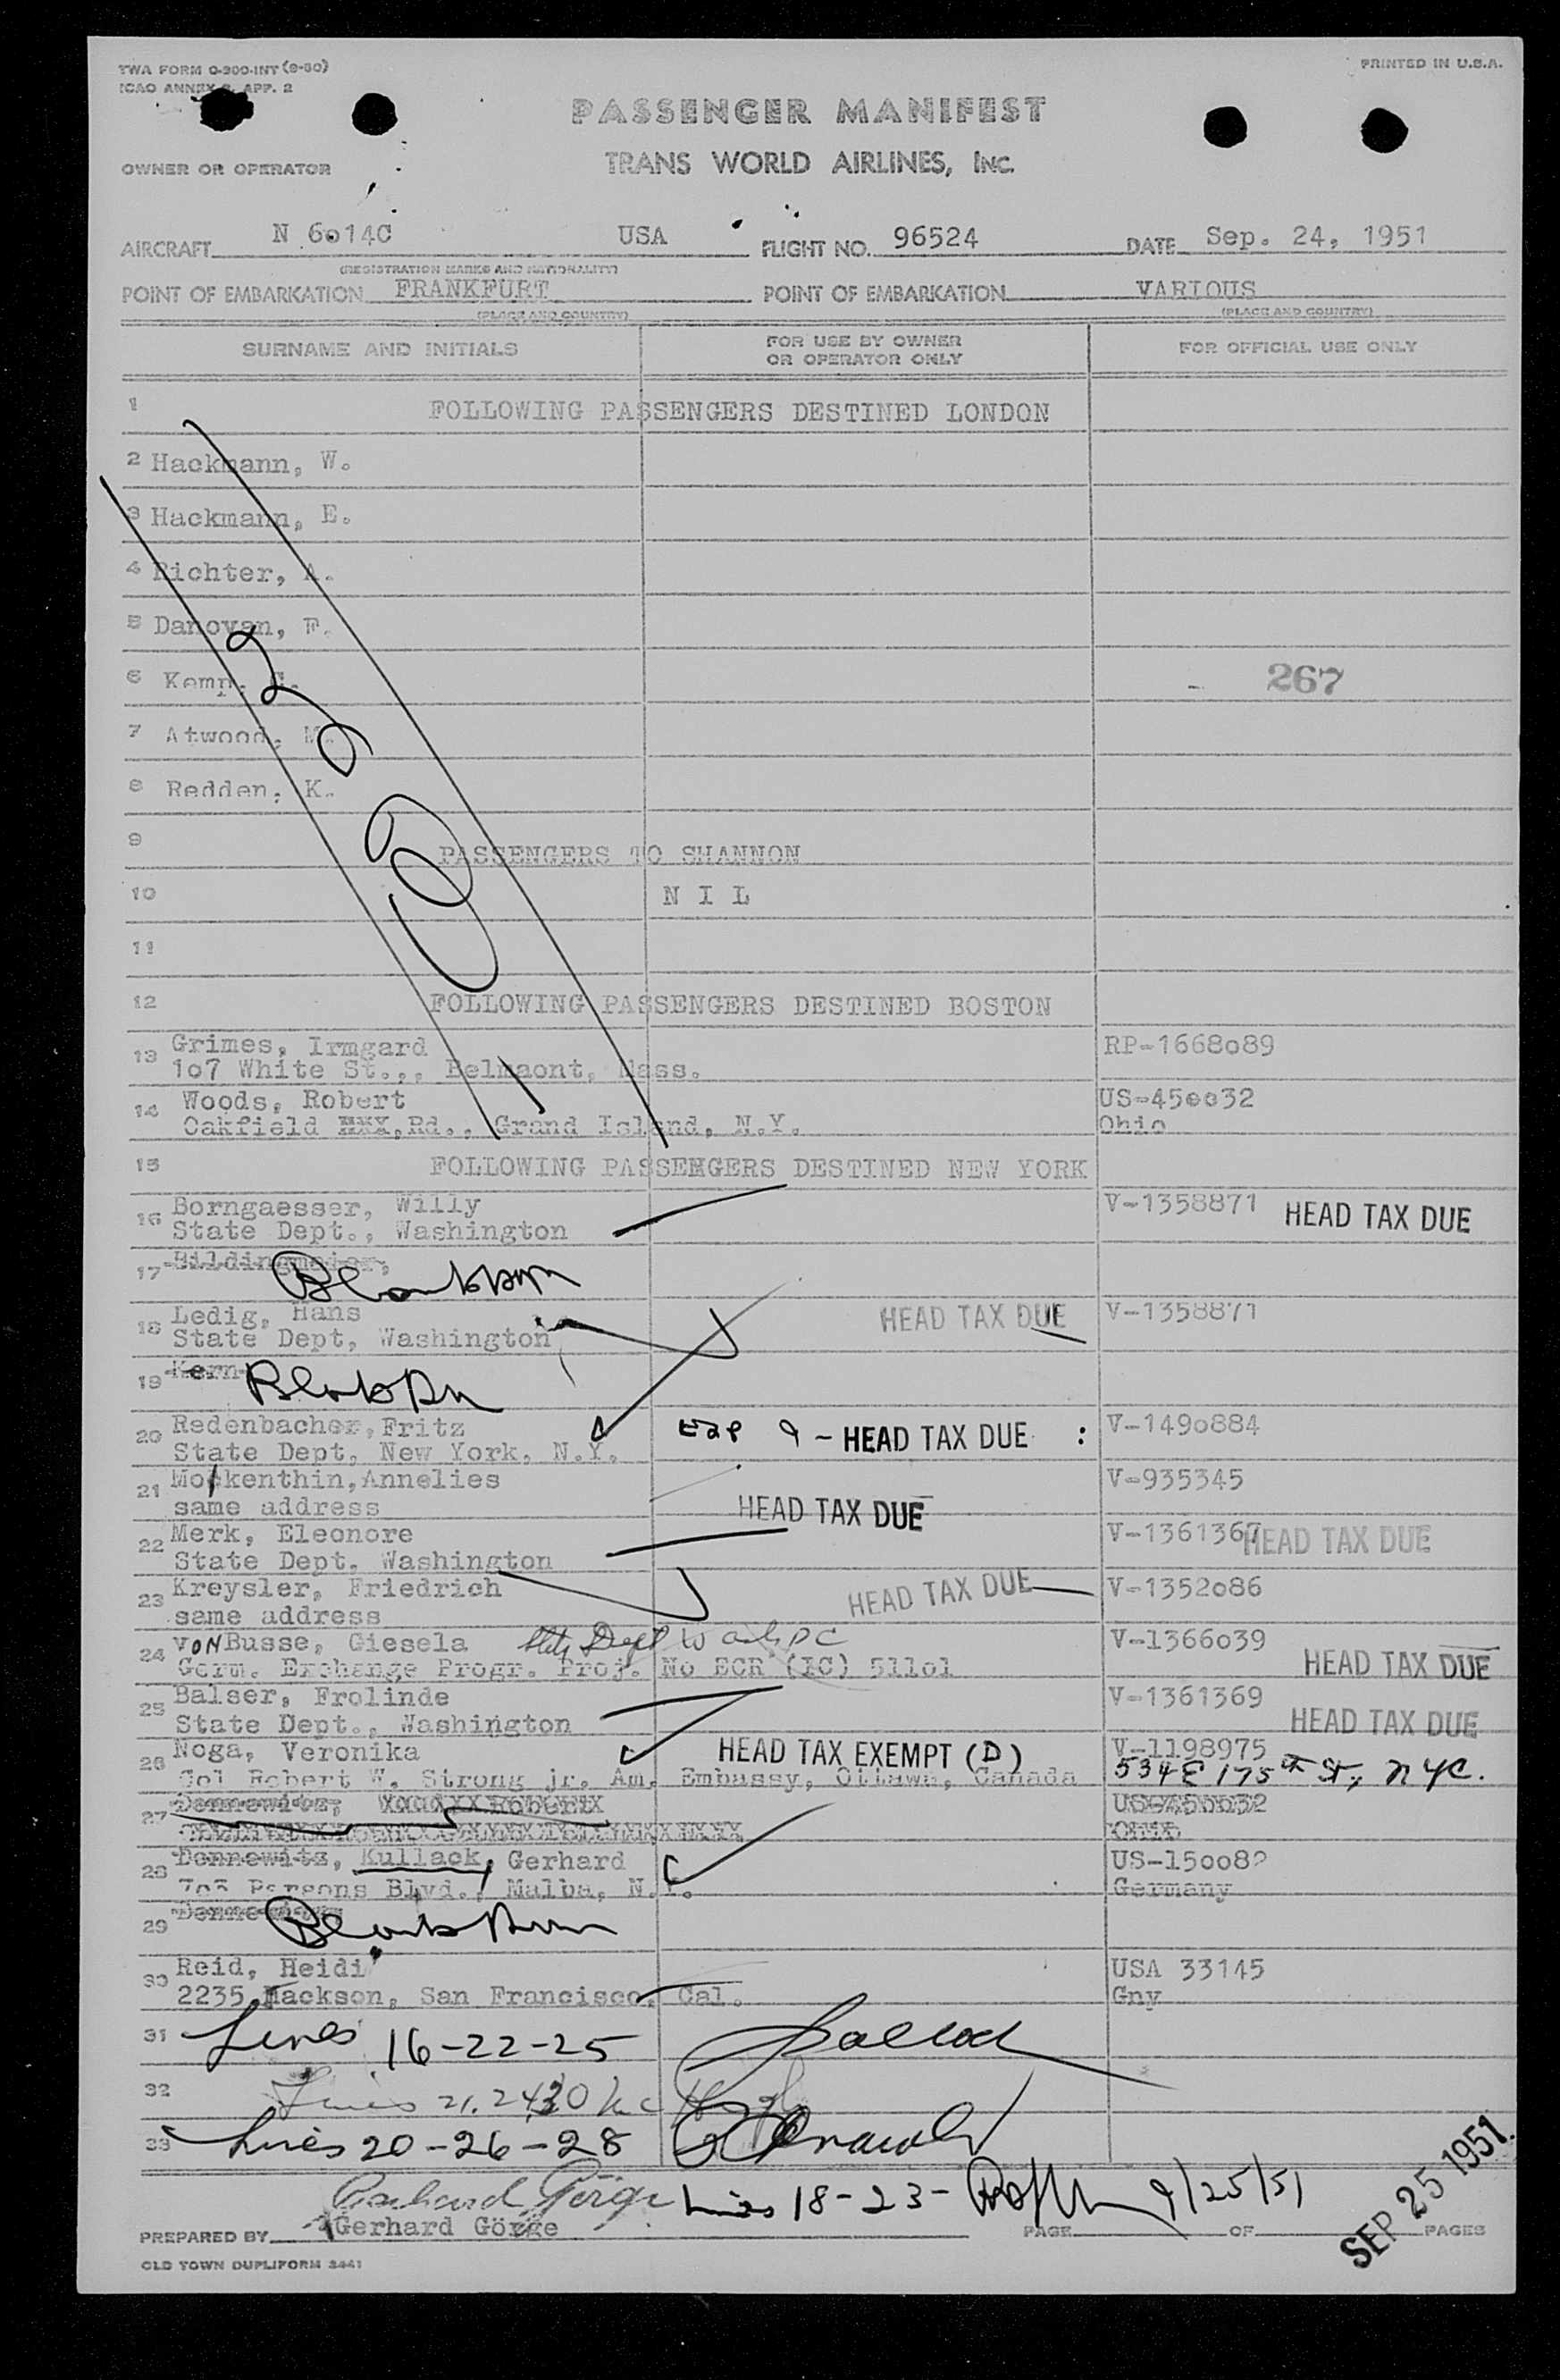 TWA FORM O-300-INT (9-50)
PRINTED IN U.S.A.
ICAO ANNEX 9, APP. 2
PASSENGER MANIFEST
OWNER OR OPERATOR
TRANS WORLD AIRLINES, INC.
AIRCRAFT N 6o14C USA FLIGHT NO. 96524 DATE Sep. 24, 1951
(REGISTRATION MARKS AND NATIONALITY)
POINT OF EMBARKATION FRANKFURT POINT OF EMBARKATION VARIOUS
(PLACE AND COUNTRY) (PLACE AND COUNTRY)
SURNAME AND INITIALS FOR USE BY OWNER OR OPERATOR ONLY FOR OFFICIAL USE ONLY
1 FOLLOWING PASSENGERS DESTINED LONDON
2 Hackmann, W.
3 Hackmann, E.
4 Richter, A.
5 Danovan, F.
6 Kemp, 267
7 Atwood, M.
8 Redden, K.
9 PASSENGERS TO SHANNON
10 N I L
11
12 FOLLOWING PASSENGERS DESTINED BOSTON
13 Grimes, Irmgard RP-1668o89
1o7 White St.,, Belmaont, Mass.
14 Woods, Robert US-45oo32
Oakfield Rd., Grand Island, N.Y. Ohio
15 FOLLOWING PASSENGERS DESTINED NEW YORK
16 Borngaesser, Willy V-1358871 HEAD TAX DUE
State Dept., Washington
17 Bildingmeier, Blank
18 Ledig, Hans HEAD TAX DUE V-1358871
State Dept, Washington
19 Kern Blank
20 Redenbacher, Fritz HEAD TAX DUE : V-149o884
State Dept, New York, N.Y.
21 Mockenthin, Annelies V-935345
same address HEAD TAX DUE
22 Merk, Eleonore V-1361367 HEAD TAX DUE
State Dept, Washington
23 Kreysler, Friedrich HEAD TAX DUE V-1352o86
same address
24 VON Busse, Giesela State Dept Wash DC V-1366o39
Germ. Exchange Progr. Proj. No ECR (IC) 511o1 HEAD TAX DUE
25 Balser, Frolinde V-1361369
State Dept., Washington HEAD TAX DUE
26 Noga, Veronika HEAD TAX EXEMPT (D) V-1198975
Col Robert W. Strong jr. Am. Embassy, Ottawa, Canada 534 E 175th St, NYC.
27 Dennewitz, Robert US-45oo32
Ohio
28 Dennewitz, Kullack, Gerhard US-15oo82
7o5 Parsons Blvd., Malba, N.Y. Germany
29 Blank
30 Reid, Heidi USA 33145
2235 Jackson, San Francisco, Cal. Gny
31 Lines 16-22-25
32 Lines 21. 24. 30
33 Lines 20-26-28
Gerhard Görge Lines 18-23- 9/25/51
PREPARED BY Gerhard Görge PAGE OF PAGES
SEP 25 1951
OLD TOWN DUPLIFORM 2441